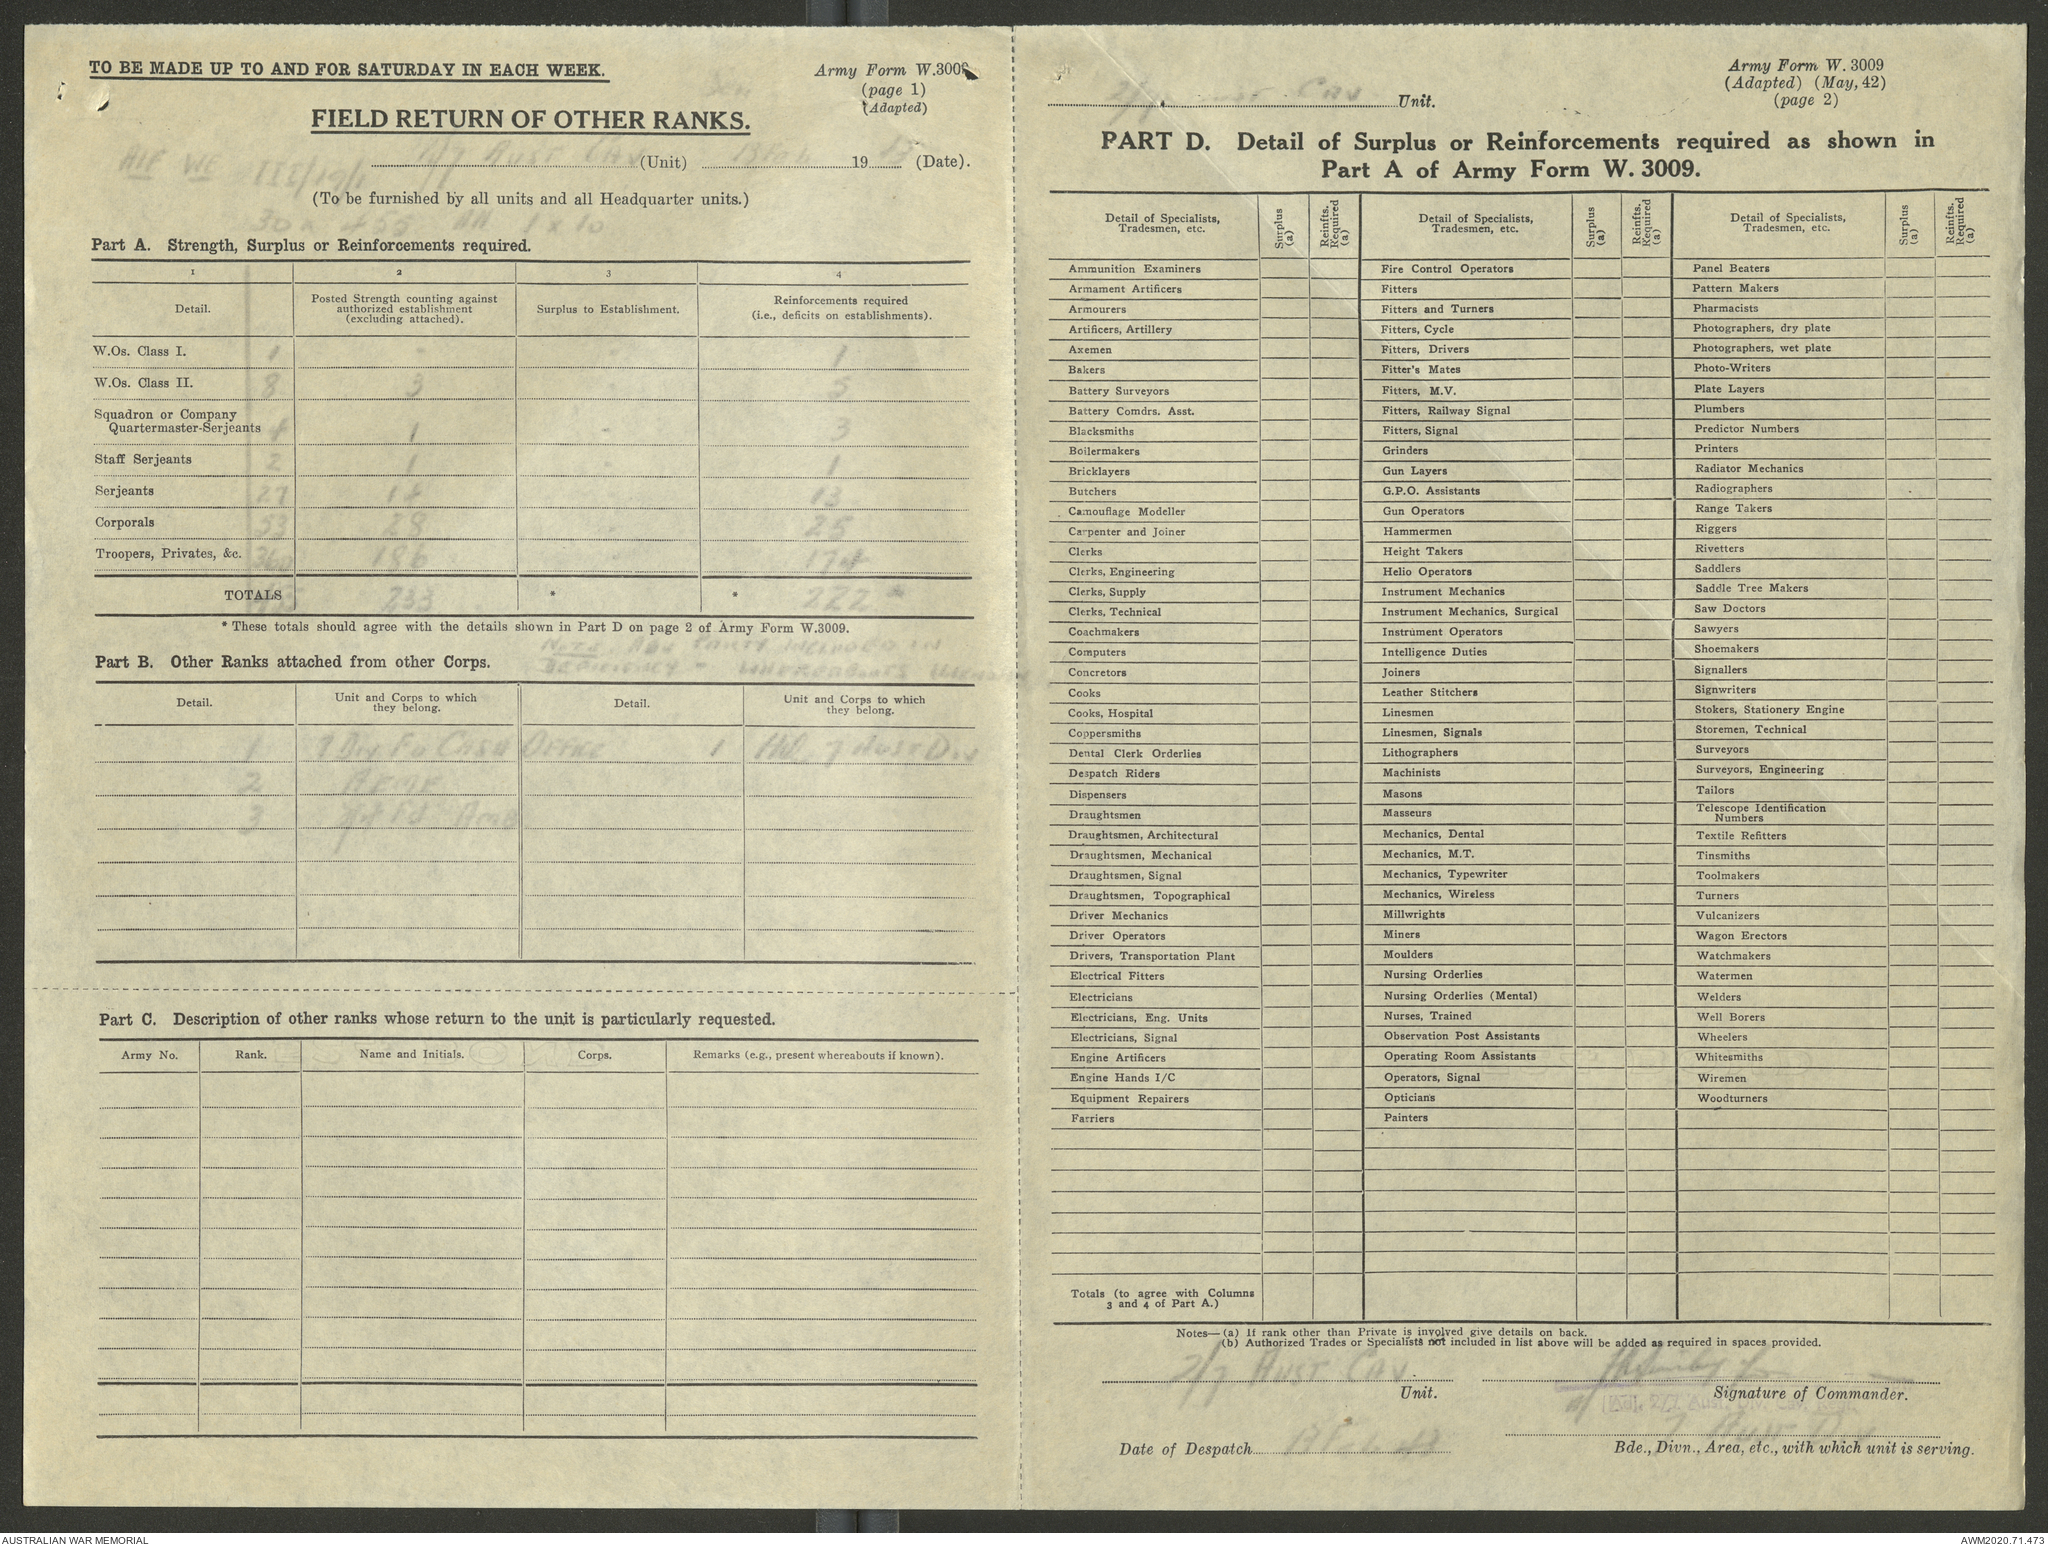 TO BE MADE UP TO AND FOR SATURDAY IN EACH WEEK.
Army Form W.3009
(page 1)
(Adapted)
FIELD RETURN OF OTHER RANKS.
2/7 AUST CAV (Unit) 13 Feb 19 43 (Date).
AIF WE III/19/1
(To be furnished by all units and all Headquarter units.)
30 x 455 AA 1 x 10
Part A. Strength, Surplus or Reinforcements required.
1 2 3 4
Detail. Posted Strength counting against authorized establishment (excluding attached). Surplus to Establishment. Reinforcements required (i.e., deficits on establishments).
W.Os. Class I. 1 - 1
W.Os. Class II. 8 3 5
Squadron or Company
Quartermaster-Serjeants 4 1 3
Staff Serjeants 2 1 1
Serjeants 27 14 13
Corporals 53 28 25
Troopers, Privates, &c. 360 186 174
TOTALS 455 233 * * 222 *
* These totals should agree with the details shown in Part D on page 2 of Army Form W.3009.
NOTE PARTY INCLUDED IN
DEFICIENCY - WHEREABOUTS
Part B. Other Ranks attached from other Corps.
Detail. Unit and Corps to which they belong. Detail. Unit and Corps to which they belong.
1 7 Div Fd Cash Office 1 HQ 7 Aust Div
2 AEME
3 Fd Amb
Part C. Description of other ranks whose return to the unit is particularly requested.
Army No. Rank. Name and Initials. Corps. Remarks (e.g., present whereabouts if known).
2/7 AUST CAV Unit.
Army Form W. 3009
(Adapted) (May, 42)
(page 2)
PART D. Detail of Surplus or Reinforcements required as shown in
Part A of Army Form W. 3009.
Detail of Specialists, Tradesmen, etc. Surplus (a) Reinfts. Required (a) Detail of Specialists, Tradesmen, etc. Surplus (a) Reinfts. Required (a) Detail of Specialists, Tradesmen, etc. Surplus (a) Reinfts. Required (a)
Ammunition Examiners Fire Control Operators Panel Beaters
Armament Artificers Fitters Pattern Makers
Armourers Fitters and Turners Pharmacists
Artificers, Artillery Fitters, Cycle Photographers, dry plate
Axemen Fitters, Drivers Photographers, wet plate
Bakers Fitter's Mates Photo-Writers
Battery Surveyors Fitters, M.V. Plate Layers
Battery Comdrs. Asst. Fitters, Railway Signal Plumbers
Blacksmiths Fitters, Signal Predictor Numbers
Boilermakers Grinders Printers
Bricklayers Gun Layers Radiator Mechanics
Butchers G.P.O. Assistants Radiographers
Camouflage Modeller Gun Operators Range Takers
Carpenter and Joiner Hammermen Riggers
Clerks Height Takers Rivetters
Clerks, Engineering Helio Operators Saddlers
Clerks, Supply Instrument Mechanics Saddle Tree Makers
Clerks, Technical Instrument Mechanics, Surgical Saw Doctors
Coachmakers Instrument Operators Sawyers
Computers Intelligence Duties Shoemakers
Concretors Joiners Signallers
Cooks Leather Stitchers Signwriters
Cooks, Hospital Linesmen Stokers, Stationery Engine
Coppersmiths Linesmen, Signals Storemen, Technical
Dental Clerk Orderlies Lithographers Surveyors
Despatch Riders Machinists Surveyors, Engineering
Dispensers Masons Tailors
Draughtsmen Masseurs Telescope Identification Numbers
Draughtsmen, Architectural Mechanics, Dental Textile Refitters
Draughtsmen, Mechanical Mechanics, M.T. Tinsmiths
Draughtsmen, Signal Mechanics, Typewriter Toolmakers
Draughtsmen, Topographical Mechanics, Wireless Turners
Driver Mechanics Millwrights Vulcanizers
Driver Operators Miners Wagon Erectors
Drivers, Transportation Plant Moulders Watchmakers
Electrical Fitters Nursing Orderlies Watermen
Electricians Nursing Orderlies (Mental) Welders
Electricians, Eng. Units Nurses, Trained Well Borers
Electricians, Signal Observation Post Assistants Wheelers
Engine Artificers Operating Room Assistants Whitesmiths
Engine Hands I/C Operators, Signal Wiremen
Equipment Repairers Opticians Woodturners
Farriers Painters
Totals (to agree with Columns
3 and 4 of Part A.)
Notes—(a) If rank other than Private is involved give details on back.
(b) Authorized Trades or Specialists not included in list above will be added as required in spaces provided.
2/7 AUST CAV
Unit. Signature of Commander.
Adj. 2/7 Aust. Div. Cav. Regt.
7 Aust Div
Date of Despatch 13 Feb 43 Bde., Divn., Area, etc., with which unit is serving.
AUSTRALIAN WAR MEMORIAL AWM2020.71.473